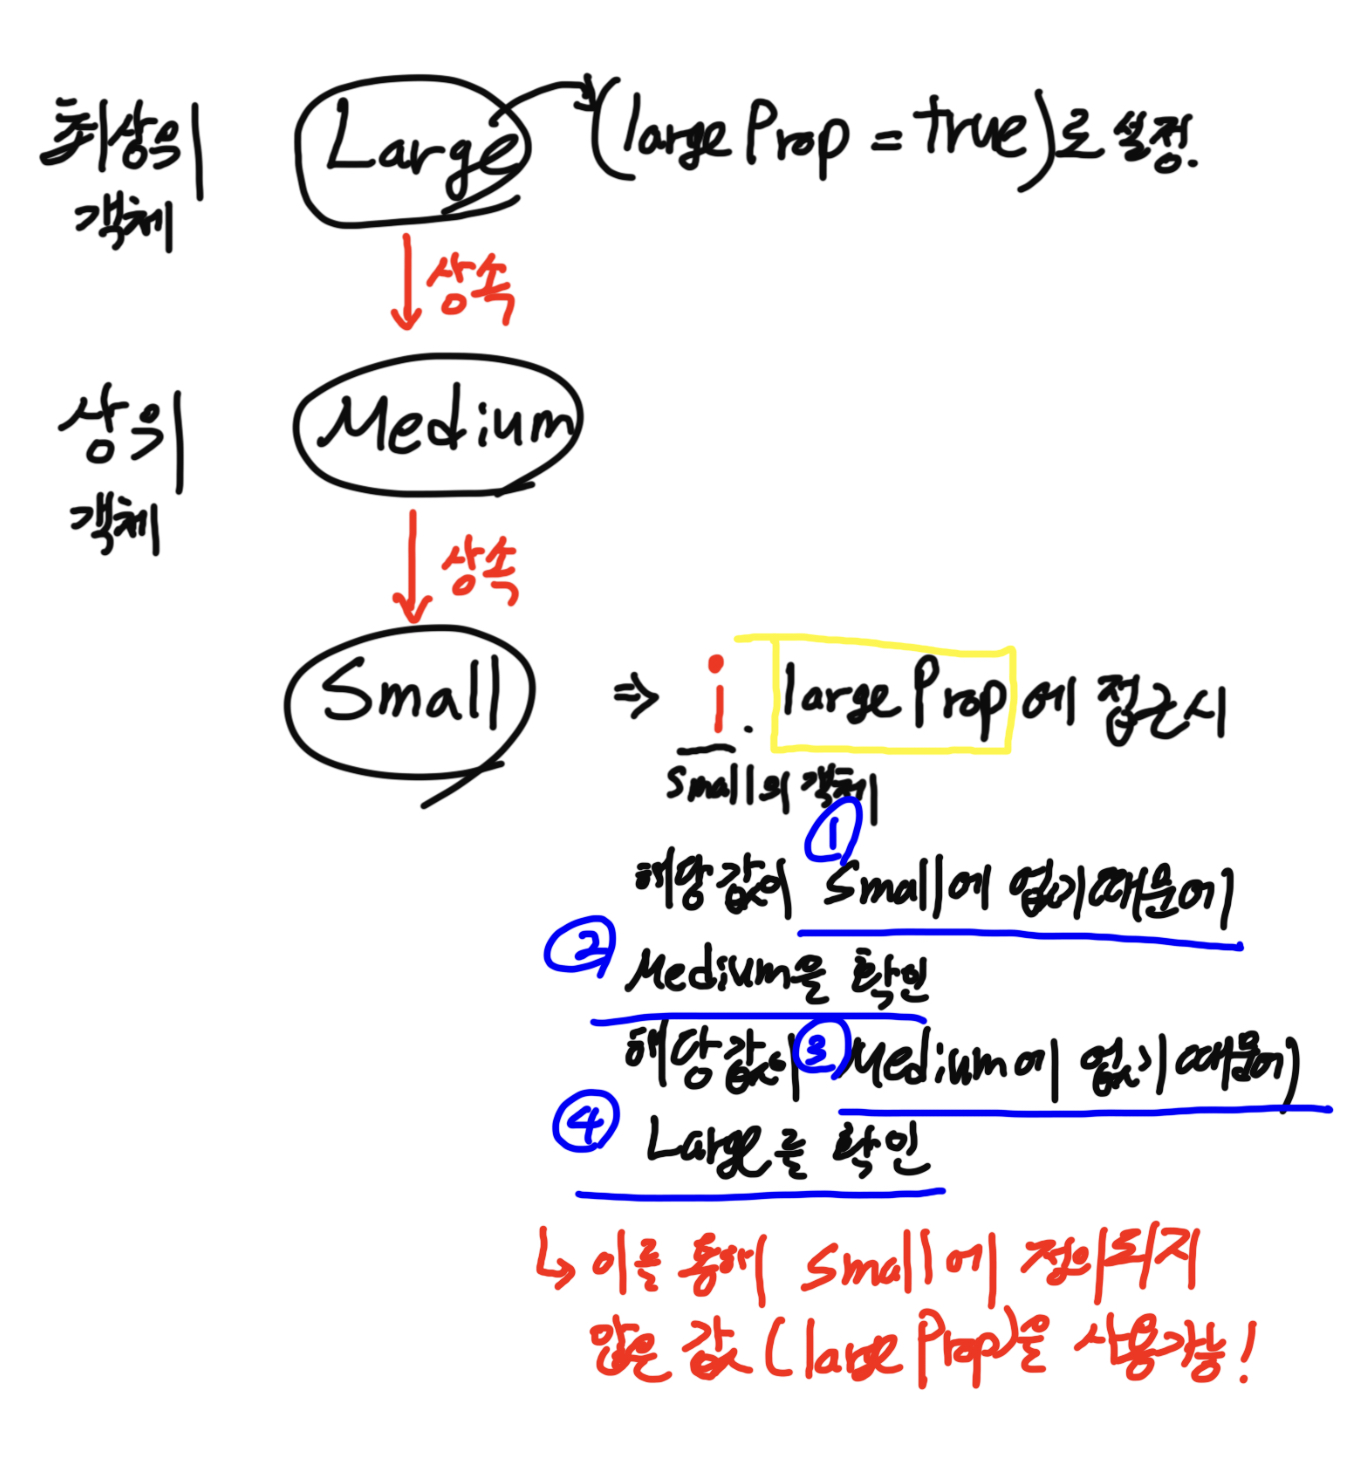 최상위
객체
Large
(largeProp = true)로 설정.
상속
상위
객체
Medium
상속
Small
⇒ i. largeProp에 접근시
Small의 객체
①
해당 값이 Small에 없기때문에
② Medium을 확인
해당 값이 ③ Medium에 없기때문에
④ Large를 확인
↳ 이를 통해 Small에 정의되지
않은 값(largeProp)을 사용가능!